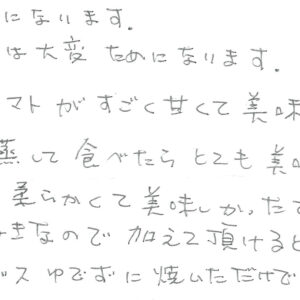 になります.
は大変 ためになります.
マト がすごく甘くて美味
蒸して 食べたら とても 美味
柔らかくて美味しかったで
きなので 加えて頂けると
ゆでずに 焼いただけで